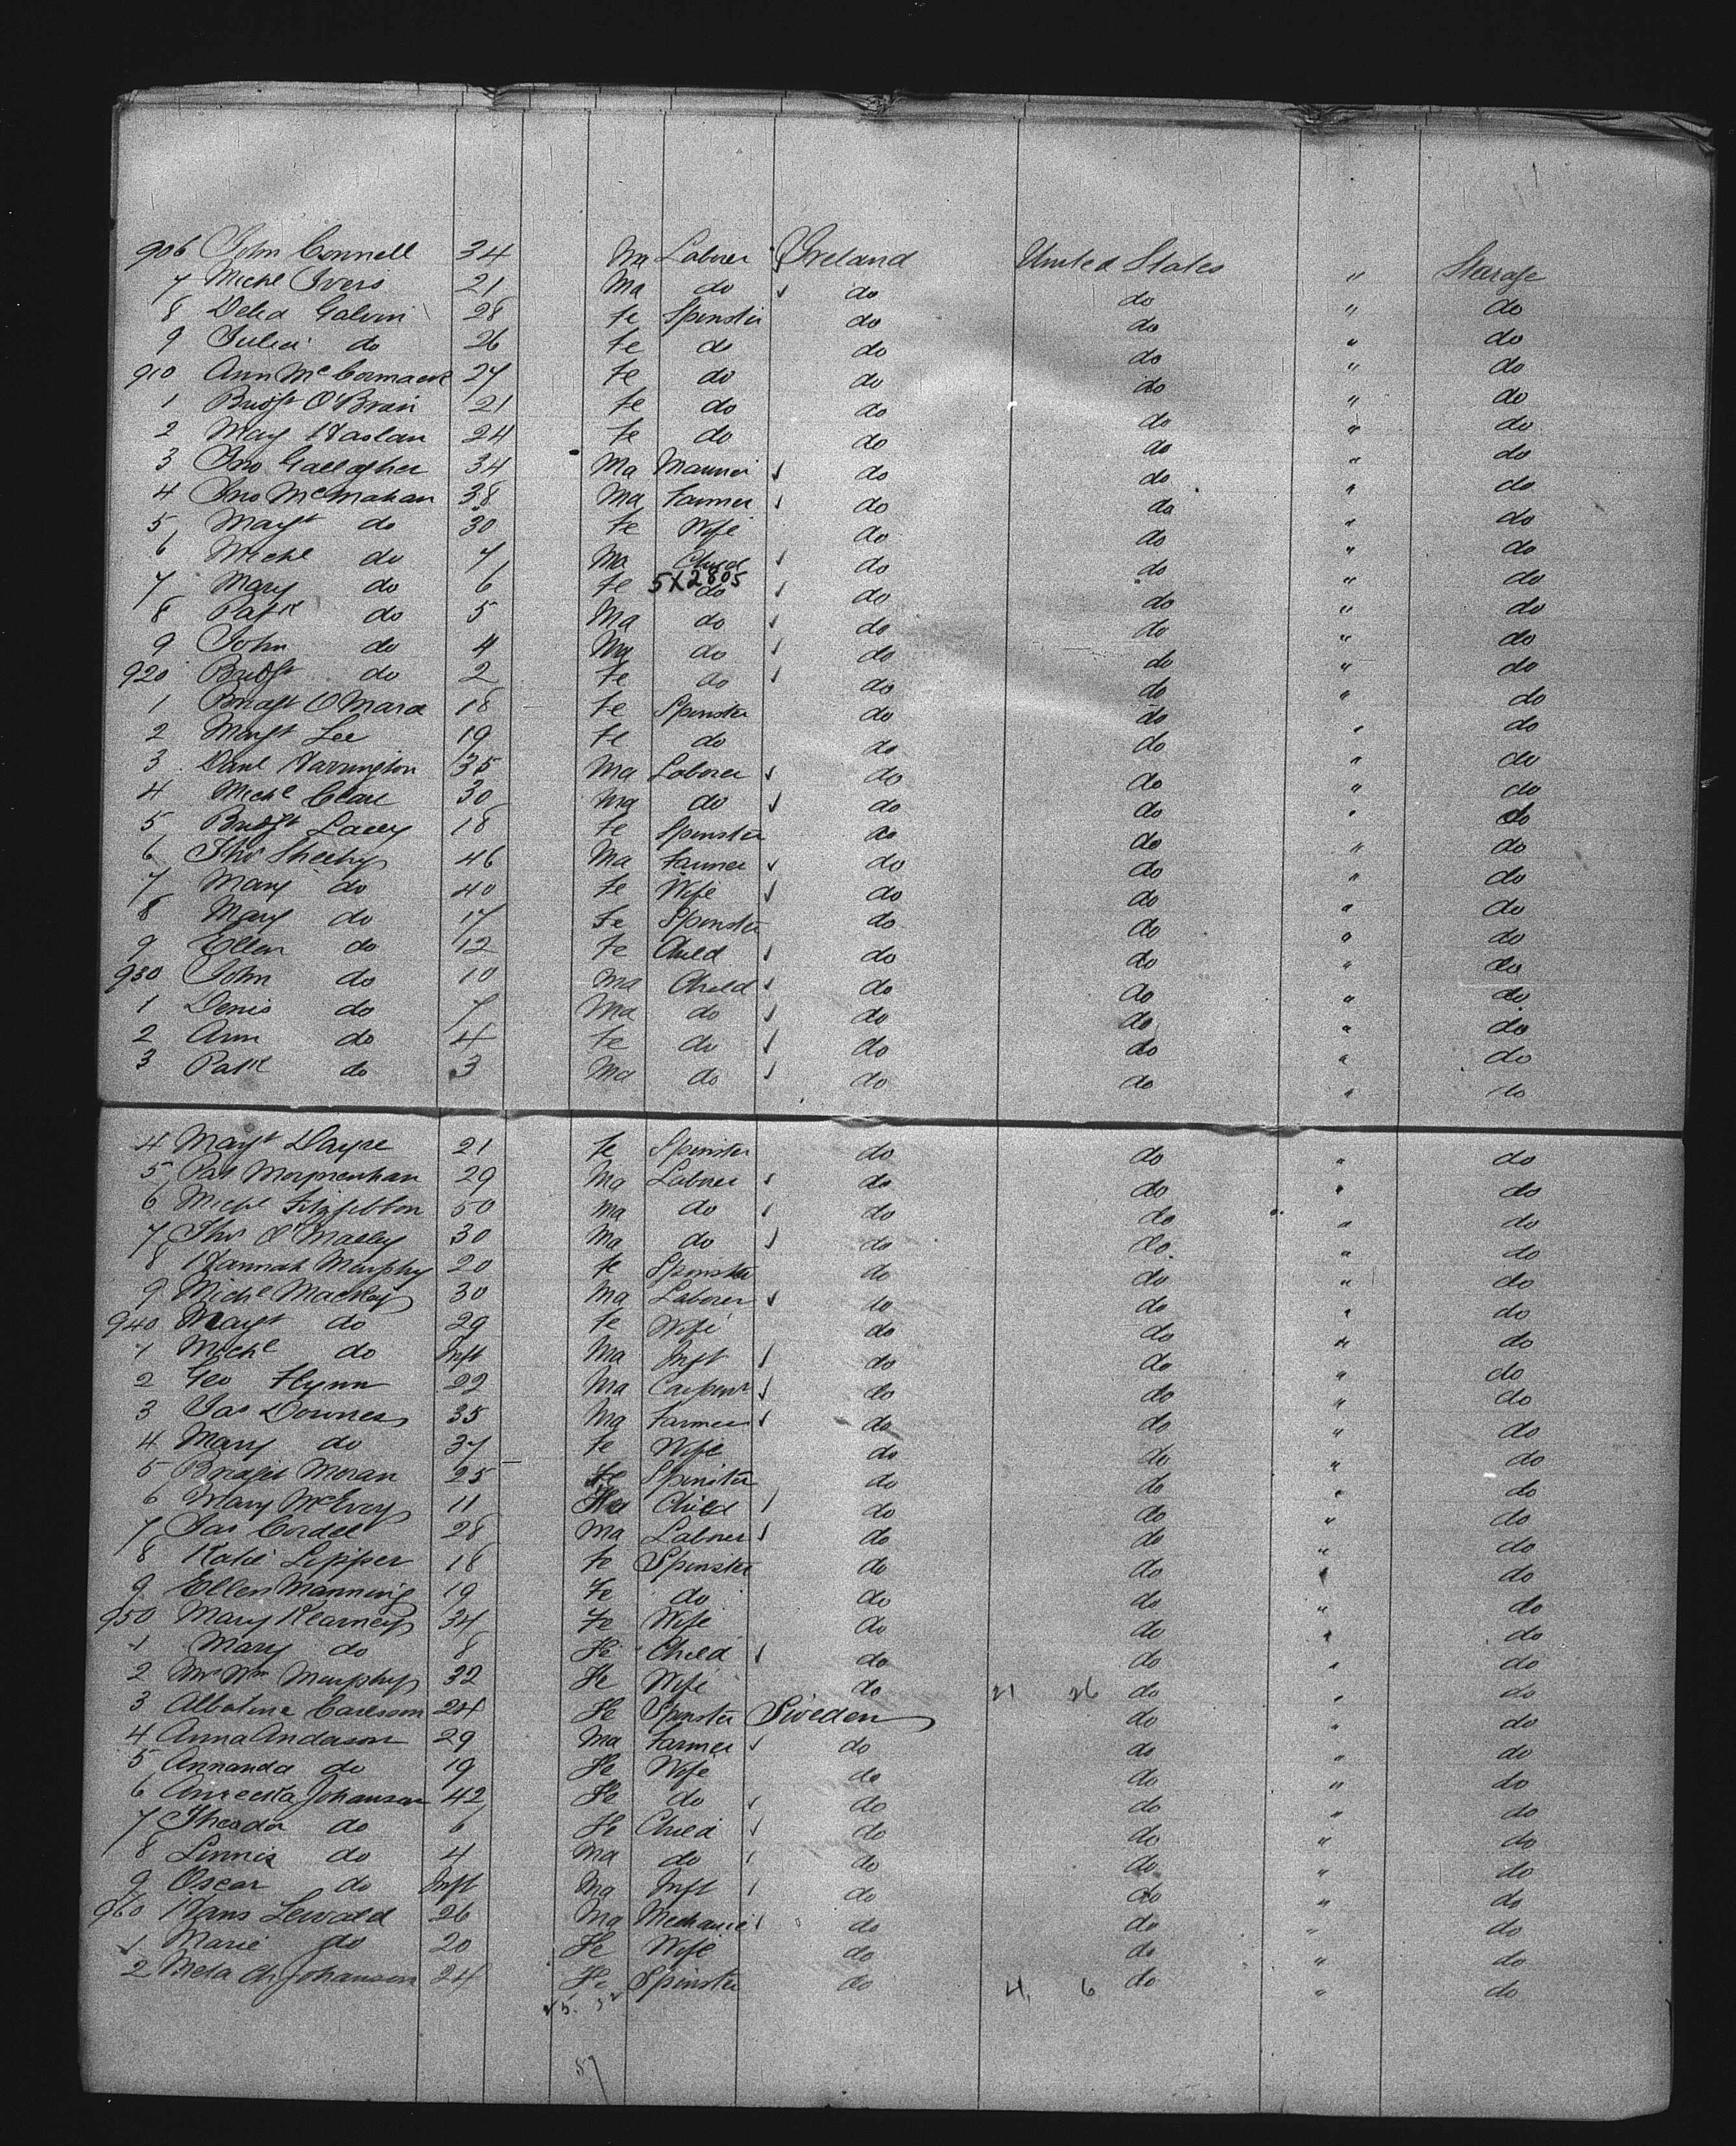 906 John Connell 34 Ma Laborer Ireland United States " Steerage
7 Michl Ivers 21 Ma do do do " do
8 Delia Galvin 28 Fe Spinster do do " do
9 Julia do 26 Fe do do do " do
910 Ann McCormack 27 Fe do do do " do
1 Bridgt O'Brain 21 Fe do do do " do
2 May Haslan 24 Fe do do do " do
3 Jno Gallagher 34 Ma Mariner do do " do
4 Jno McMahan 38 Ma Farmer do do " do
5 Margt do 30 Fe Wife do do " do
6 Michl do 7 Ma Child do do " do
5X2805
7 Mary do 6 Fe do do do " do
8 Patk do 5 Ma do do do " do
9 John do 4 Ma do do do " do
920 Bridgt do 2 Fe do do do " do
1 Bridgt O'Mara 18 Fe Spinster do do " do
2 Margt Lee 19 Fe do do do " do
3 Danl Harrington 35 Ma Laborer do do " do
4 Michl Clare 30 Ma do do do " do
5 Bridgt Lacey 18 Fe Spinster do do " do
6 Thos Sheehy 46 Ma Farmer do do " do
7 Mary do 40 Fe Wife do do " do
8 Mary do 17 Fe Spinster do do " do
9 Ellen do 12 Fe Child do do " do
930 John do 10 Ma Child do do " do
1 Denis do 7 Ma do do do " do
2 Ann do 4 Fe do do do " do
3 Patk do 3 Ma do do do " do
4 Margt Dayre 21 Fe Spinster do do " do
5 Pat 29 Ma Laborer do do " do
6 Michl Fitzgibbon 50 Ma do do do " do
7 Thos O'Malley 30 Ma do do do " do
8 Hannah Murphy 20 Fe Spinster do do " do
9 Michl Mackey 30 Ma Laborer do do " do
940 Margt do 29 Fe Wife do do " do
1 Michl do Inft Ma Inft do do " do
2 Geo Flynn 22 Ma Carpenr do do " do
3 Jas Downes 35 Ma Farmer do do " do
4 Mary do 37 Fe Wife do do " do
5 Bridget Moran 25 Fe Spinster do do " do
6 Mary McEvoy 11 Fe Child do do " do
7 Jas Cordell 28 Ma Laborer do do " do
8 Katie Lipper 18 Fe Spinster do do " do
9 Ellen Manning 19 Fe do do do " do
950 Mary Kearney 34 Fe Wife do do " do
1 Mary do 8 Fe Child do do " do
2 Mrs Wm Murphy 32 Fe Wife do 21 26 do " do
3 Albotina Carlsson 24 Fe Spinster Sweden do " do
4 Anna Andason 29 Ma Farmer do do " do
5 Annanda do 19 Fe Wife do do " do
6 Johanson 42 Fe do do do " do
7 Theodor do 6 Fe Child do do " do
8 Linnis do 4 Ma do do do " do
9 Oscar do Inft Ma Inft do do " do
960 Hans Lewald 26 Ma Mechanic do do " do
1 Marie do 20 Fe Wife do do " do
2 Meta Ch Johanson 24 Fe Spinster do 4 6 do " do
25. 32
57